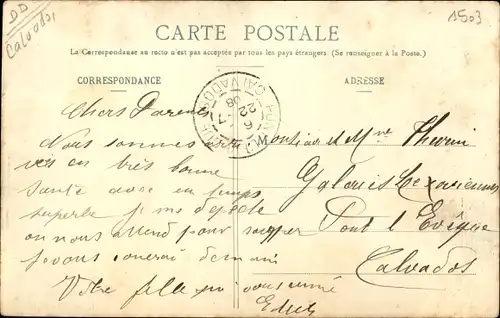 DD
Calvados
1503
CARTE POSTALE
La Correspondance au recto n'est pas acceptée par tous les pays étrangers. (Se renseigner à la Poste.)
CORRESPONDANCE
ADRESSE
CALVADOS
6
22 -7
08
Chers Parents
Nous sommes
en très bonne
santé avec un temps
superbe je me dépêche
on nous attend pour souper
je vous demain
Votre fille qui vous aime
Monsieur et Mme
Pont l'Evêque
Calvados